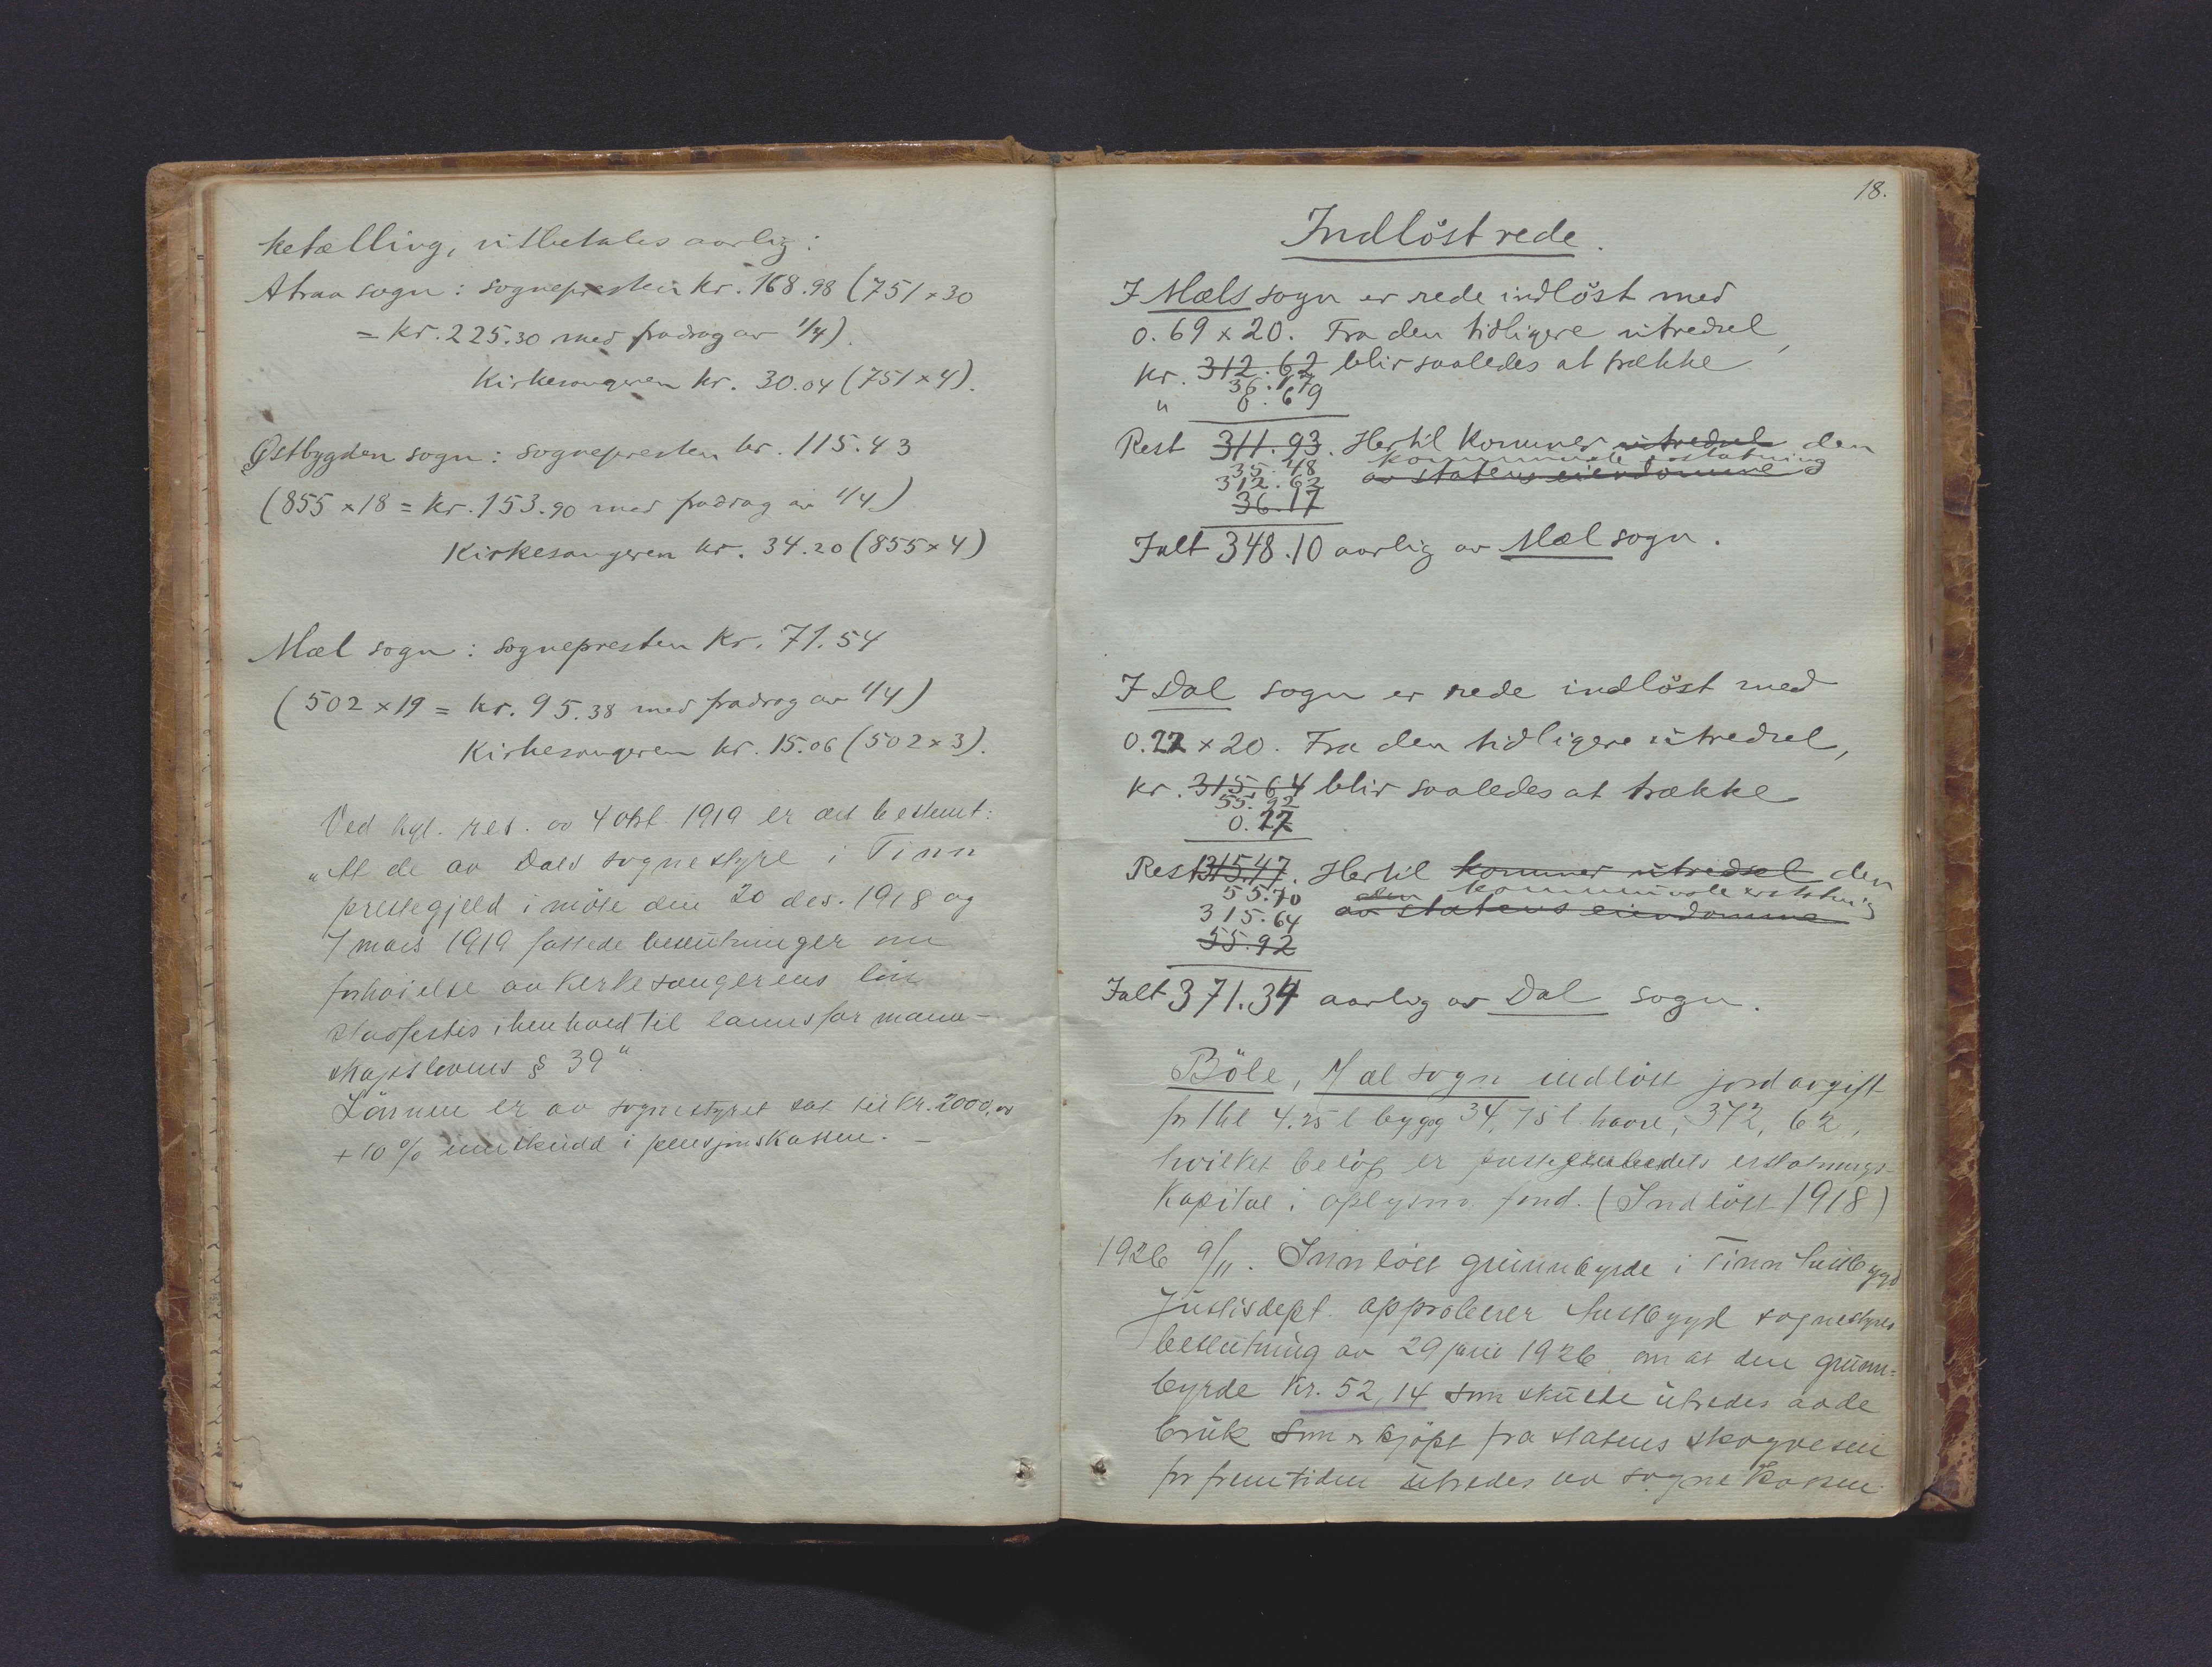 ketælling, utbetales aarlig:
Atraa sogn: sognepresten kr. 168.98 (751 x 30
= kr. 225.30 med fradrag av 1/4).
Kirkesangeren kr. 30.04 (751 x 4).
Østbygden sogn: sognepresten kr. 115.43
(855 x 18 = kr. 153.90 med fradrag av 1/4)
Kirkesangeren kr. 34.20 (855 x 4)
Mæl sogn: sognepresten kr. 71.54
(502 x 19 = kr. 95.38 med fradrag av 1/4)
Kirkesangeren kr. 15.06 (502 x 3).
Ved kgl. res. av 4 okt 1919 er det bestemt:
"At de av Dals sognestyre i Tinn
prestegjeld i møte den 20 des. 1918 og
7 mars 1919 fattede beslutninger om
forhøielse av kirkesangerens løn
stadfestes i henhold til lanns formann-
skapslovens § 39".
Lønnen er av sognestyret sat til kr. 2000,00
+ 10% innskudd i pensjonskassen. -
18.
Indlöst rede.
I Mæls sogn er rede indlöst med
0.69 x 20. Fra den tidligere utredsel,
kr. 312.62 blir saaledes at trække
36.17
" 0.69
Rest 311.93. Hertil kommer utredsel den
kommunale erstatning
35.48 av statens eiendomme
312.62
36.17
Ialt 348.10 aarlig av Mæl sogn.
I Dal sogn er rede indlöst med
0.22 x 20. Fra den tidligere utredsel,
kr. 315.64 blir saaledes at trække
55.92
0.22
Rest 315.47. Hertil kommer utredsel den
den kommunale erstatning
55.70 av statens eiendomme
315.64
55.92
Ialt 371.34 aarlig av Dal sogn.
Böle, Mæl sogn indløst jordavgift
for 1 hl 4.25 l bygg 34,75 l havre, 372,62,
hvilket beløp er prestegjeldets erstatnings-
kapital i oplysn. fond. (Indløst 1918)
1926 9/11. Innløst grunnbyrde i Tinn Austbygd
Justisdept. approberer Austbygd sognestyres
beslutning av 29 juni 1926 om at den grunn-
byrde kr. 52,14 som skulde utredes av de
bruk som er kjøpt fra statens skogvesen
for fremtiden utredes av sognekassen